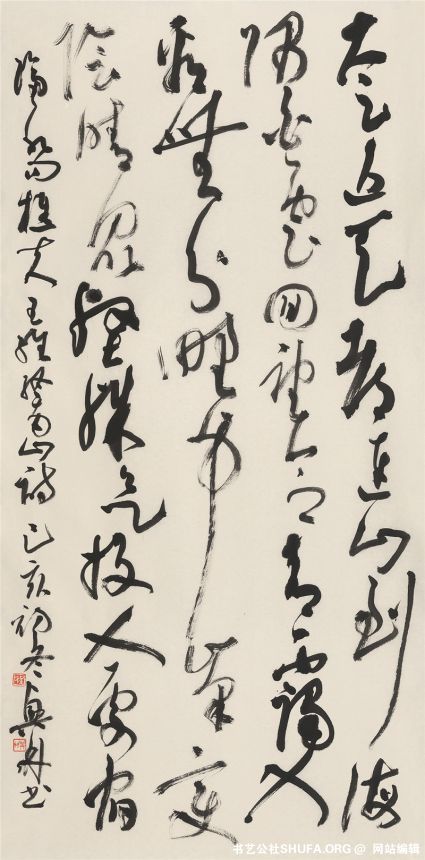 太乙近天都連山到海
隅白雲回望合青靄入
看無分野中峰變
陰晴眾壑殊欲投人處宿
隔水問樵夫王維終南山詩己亥初冬書
书艺公社SHUFA.ORG @ 网站编辑